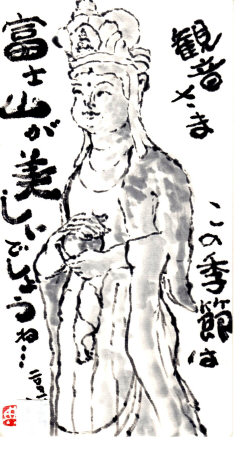 観音さま
この季節は
富士山が美
しいでしょうね…